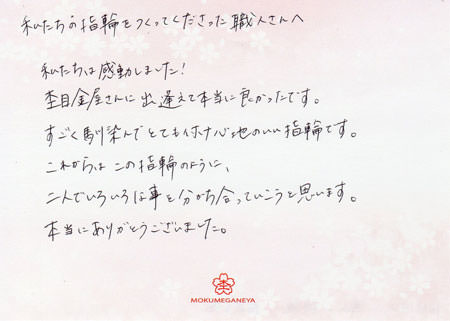 私たちの指輪をつくってくださった職人さんへ
私たちは感動しました!
杢目金屋さんに出逢えて本当に良かったです。
すごく馴染んでとても付け心地のいい指輪です。
これからはこの指輪のように、
二人でいろいろな事を分かち合っていこうと思います。
本当にありがとうございました。
杢
MOKUMEGANEYA